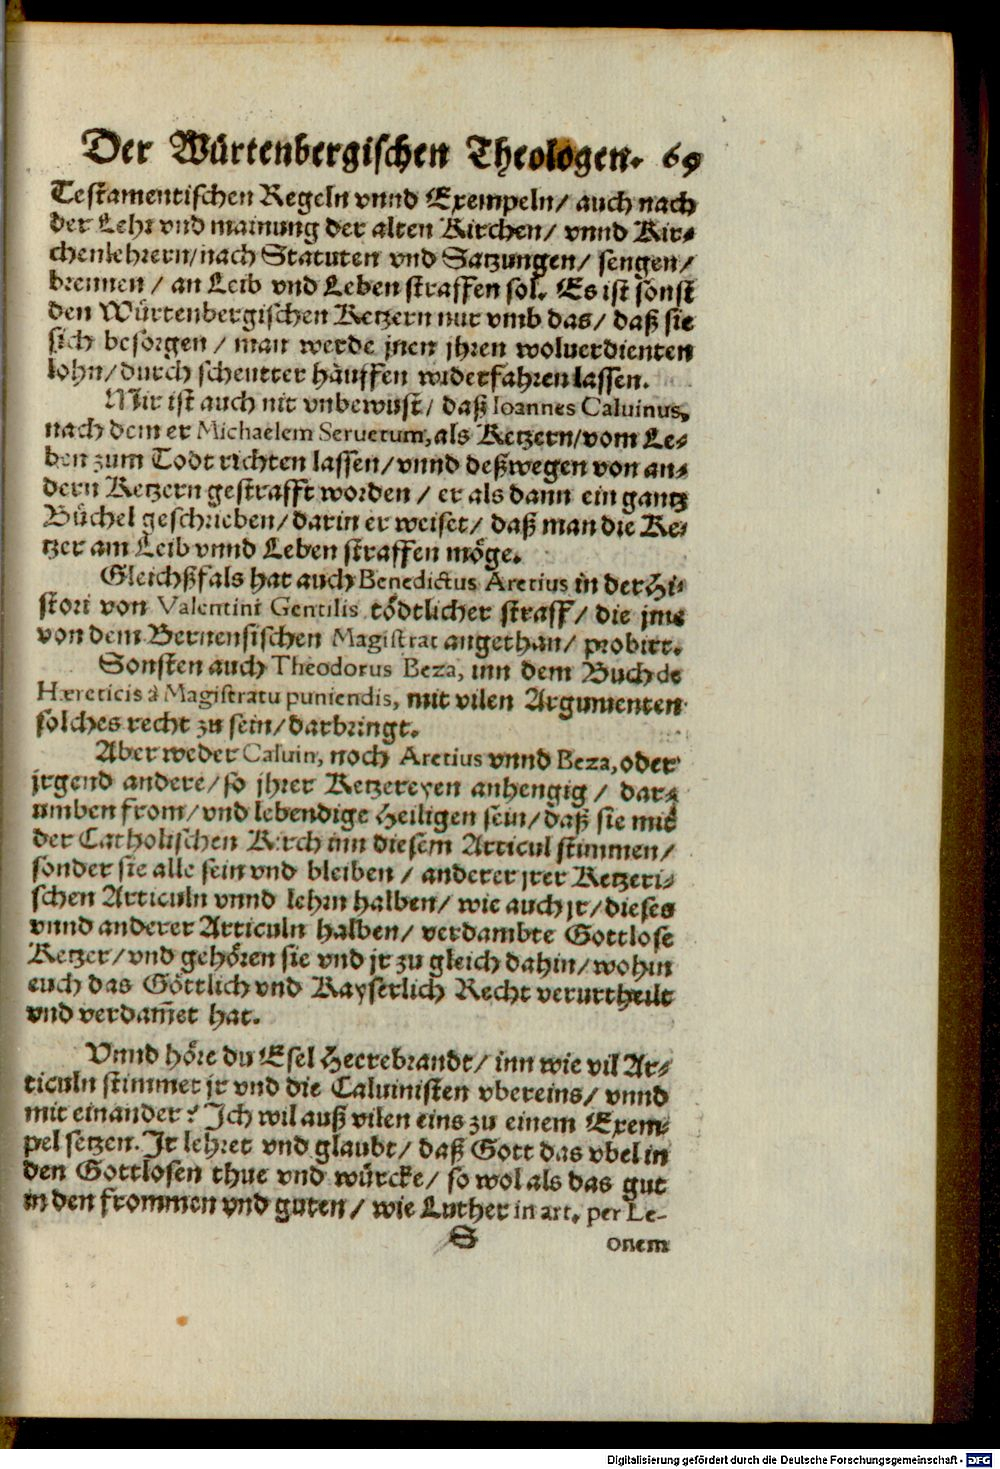 Der Würtenbergischen Theologen. 69
Testamentischen Regeln vnnd Exempeln/ auch nach
der Lehr vnd mainung der alten Kirchen/ vnnd Kir-
chenlehrern/nach Statuten vnd Satzungen/ sengen/
brennen / an Leib vnd Leben straffen sol. Es ist sonst
den Würtenbergischen Ketzern nur vmb das/ daß sie
sich besorgen / man werde jnen jhren wolverdienten
lohn/durch scheutter häuffen widerfahren lassen.
Mir ist auch nit vnbewust/ daß Ioannes Caluinus,
nach dem er Michaelem Seruetum, als Ketzern/vom Le-
ben zum Todt richten lassen/vnnd deßwegen von an-
dern Ketzern gestrafft worden / er als dann ein gantz
Büchel geschrieben/darin er weiset/ daß man die Ke-
tzer am Leib vnnd Leben straffen möge.
Gleichßfals hat auch Benedictus Aretius in der Hi-
stori von Valentini Gentilis tödtlicher straff/ die jme
von dem Bernensischen Magistrat angethan/ probirt.
Sonsten auch Theodorus Beza, inn dem Buch de
Hæreticis à Magistratu puniendis, mit vilen Argumenten
solches recht zu sein/darbringt.
Aber weder Caluin, noch Aretius vnnd Beza, oder
jrgend andere/so jhrer Ketzereyen anhengig / dar-
umben from/vnd lebendige Heiligen sein/daß sie mit
der Catholischen Kirch inn diesem Articul stimmen/
sonder sie alle sein vnd bleiben / anderer jrer Ketzeri-
schen Articuln vnnd lehrn halben/ wie auch jr/dieses
vnnd anderer Articuln halben/ verdambte Gottlose
Ketzer/vnd gehören sie vnd jr zu gleich dahin/wohin
euch das Göttlich vnd Kayserlich Recht verurtheilt
vnd verdam̃et hat.
Vnnd höre du Esel Heerebrandt/ inn wie vil Ar-
ticuln stimmet jr vnd die Caluinisten vbereins/ vnnd
mit einander? Ich wil auß vilen eins zu einem Exem-
pel setzen. Ir lehret vnd glaubt/ daß Gott das vbel in
den Gottlosen thue vnd würcke/ so wol als das gut
in den frommen vnd guten/ wie Luther in art. per Le-
S onem
Digitalisierung gefördert durch die Deutsche Forschungsgemeinschaft - DFG